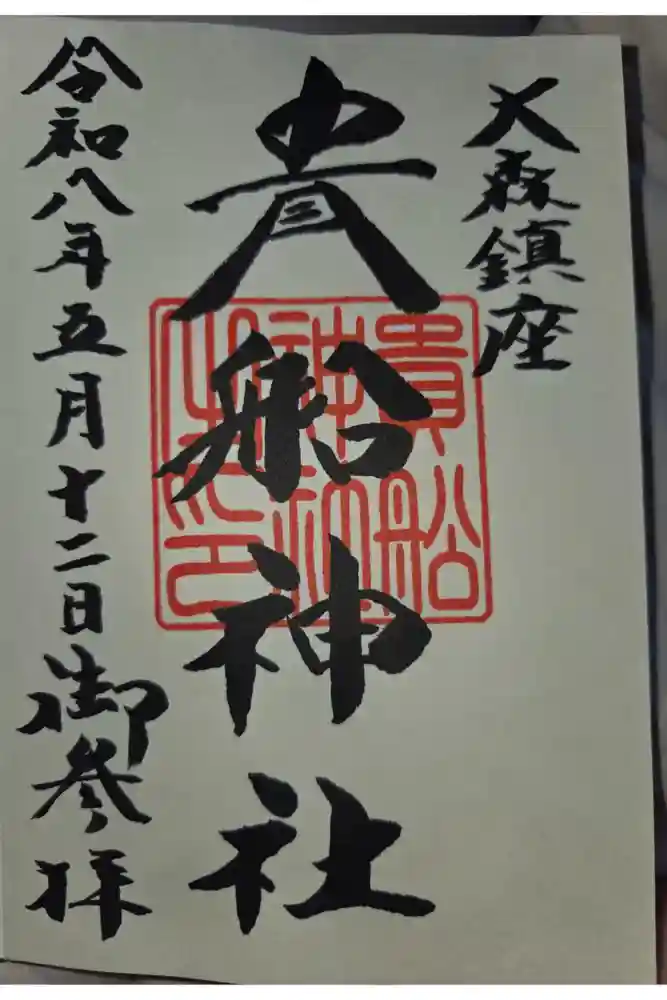 大森鎮座
貴船神社
貴船
神社
之印
令和八年五月十二日御参拝